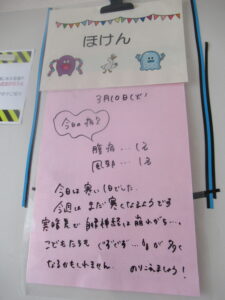 ほけん
3月10日(火)
今日の病?
腹痛…1名
風邪…1名
今日は寒い1日でした。
今週はまだ寒くなるようです
寒暖差で自律神経は崩れがち…。
こどもたちもぐずぐず…が多く
なるかもしれません。
のりこえましょう!